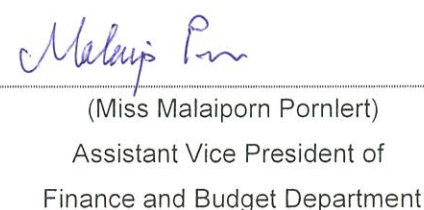 (Miss Malaiporn Pornlert)
Assistant Vice President of
Finance and Budget Department